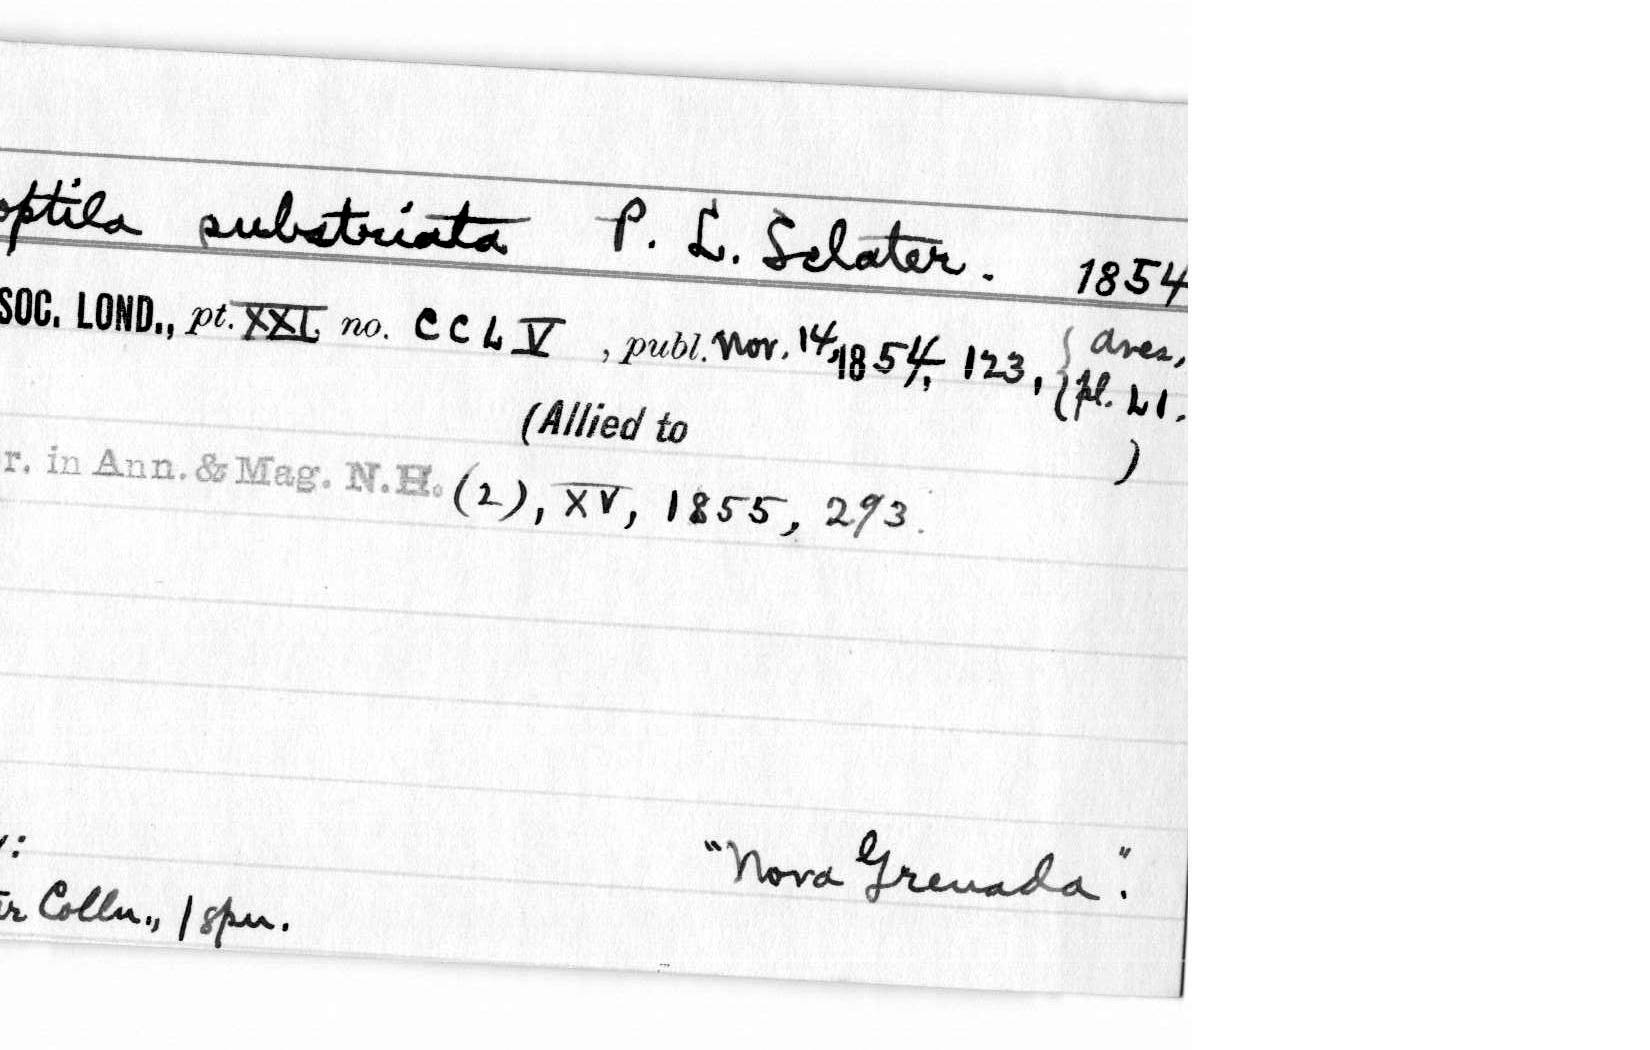 optila substriata P. L. Sclater. 1854
SOC. LOND., pt. XXI, no. CCLV, publ. Nov. 14, 1854, 123, { Aves,
{ pl. LI.
(Allied to )
r. in Ann. & Mag. N.H. (2), XV, 1855, 293.
"Nova Grenada".
r Colln., 1 spn.